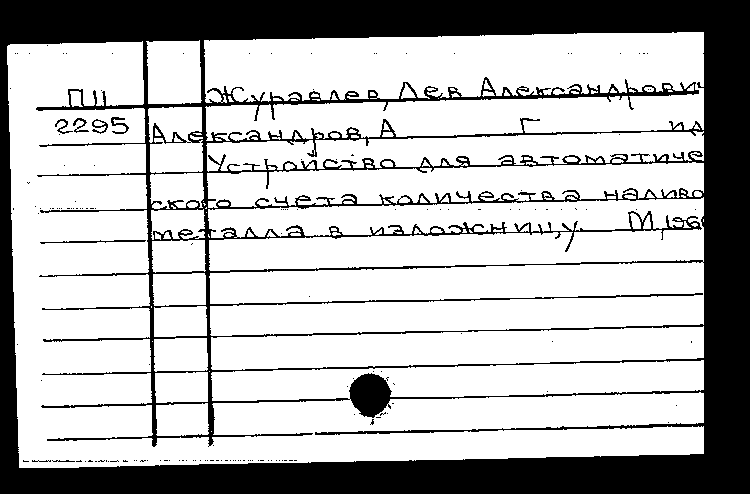 П11 Журавлев, Лев Александрович
2295 Александров, А Г ид
Устройство для автоматиче
ского счета количества наливо
металла в изложницу. М, 196